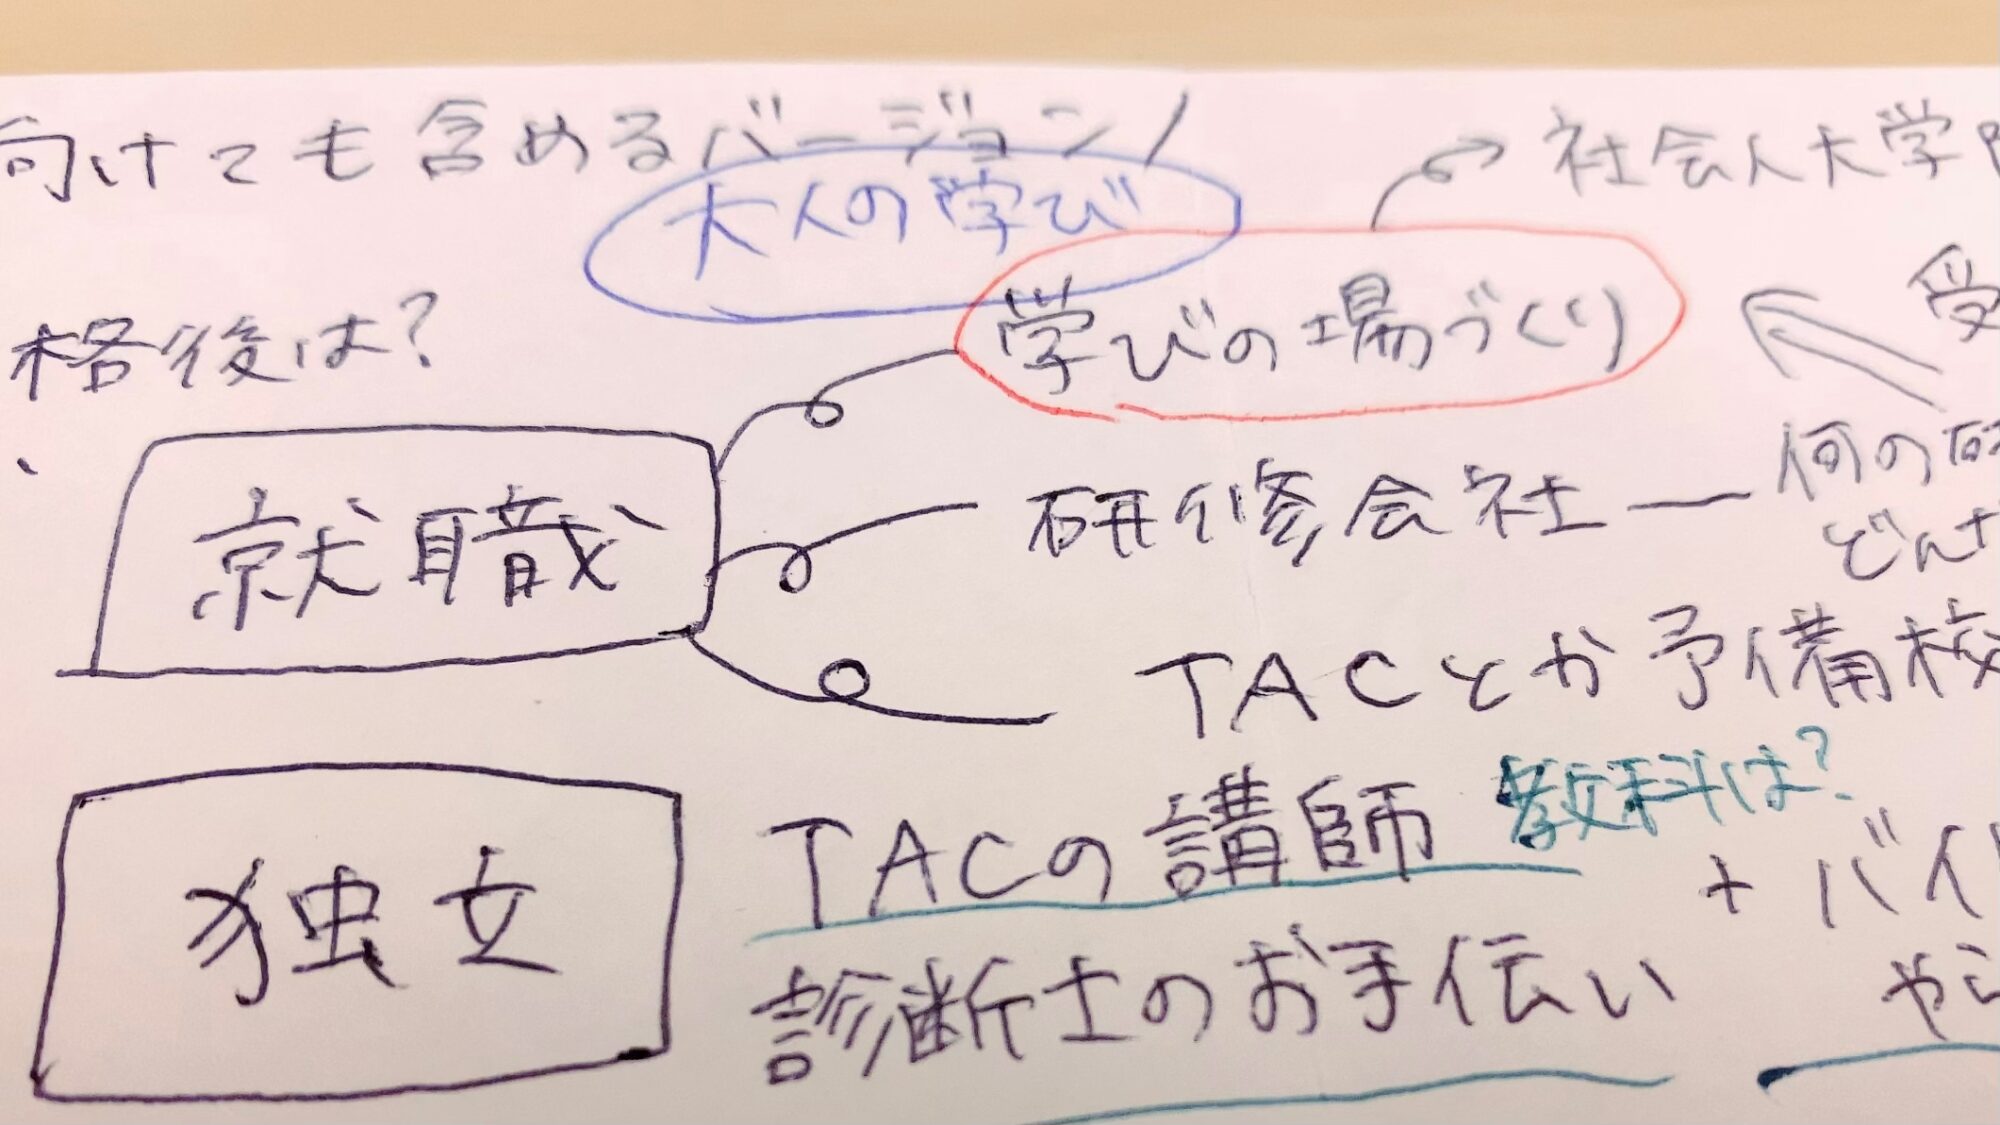 向けても含めるバージョン!
大人の学び
社会人大学
格後は?
学びの場づくり
受
就職
研修会社 — 何の研
どんな
TACとか予備校
独立
TACの講師
教科は?
+バイ
診断士のお手伝い
やら